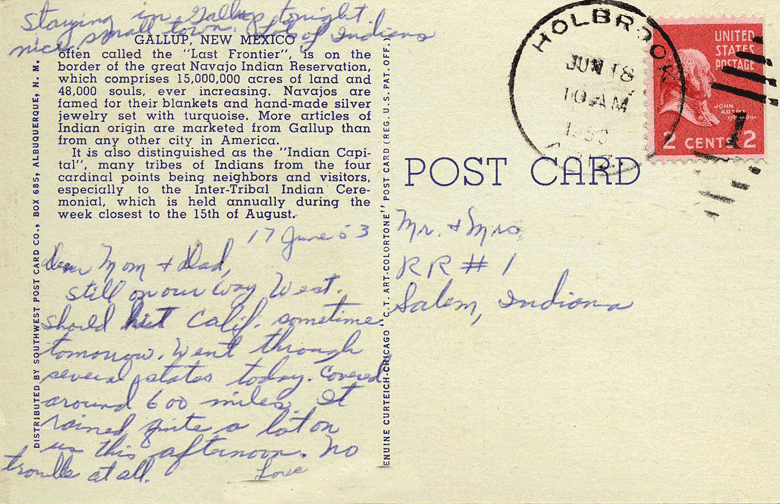 Staying in Gallup tonight
nice small town. Lot of Indians
GALLUP, NEW MEXICO
often called the "Last Frontier", is on the
border of the great Navajo Indian Reservation,
which comprises 15,000,000 acres of land and
48,000 souls, ever increasing. Navajos are
famed for their blankets and hand-made silver
jewelry set with turquoise. More articles of
Indian origin are marketed from Gallup than
from any other city in America.
It is also distinguished as the "Indian Capi-
tal", many tribes of Indians from the four
cardinal points being neighbors and visitors,
especially to the Inter-Tribal Indian Cere-
monial, which is held annually during the
week closest to the 15th of August.
17 June 53
Dear Mom & Dad,
Still on our way West.
Should hit Calif. sometime
tomorrow. Went through
several states today. Covered
around 600 miles. It
rained quite a lot on
us this afternoon. No
trouble at all.
Love
DISTRIBUTED BY SOUTHWEST POST CARD CO., BOX 685, ALBUQUERQUE, N. M.
ENUINE CURTEICH-CHICAGO "C.T. ART-COLORTONE" POST CARD (REG. U.S. PAT. OFF.
POST CARD
HOLBROOK
JUN 18
10 AM
UNITED
STATES
POSTAGE
JOHN
ADAMS
2 CENTS 2
Mr. & Mrs
RR # 1
Salem, Indiana